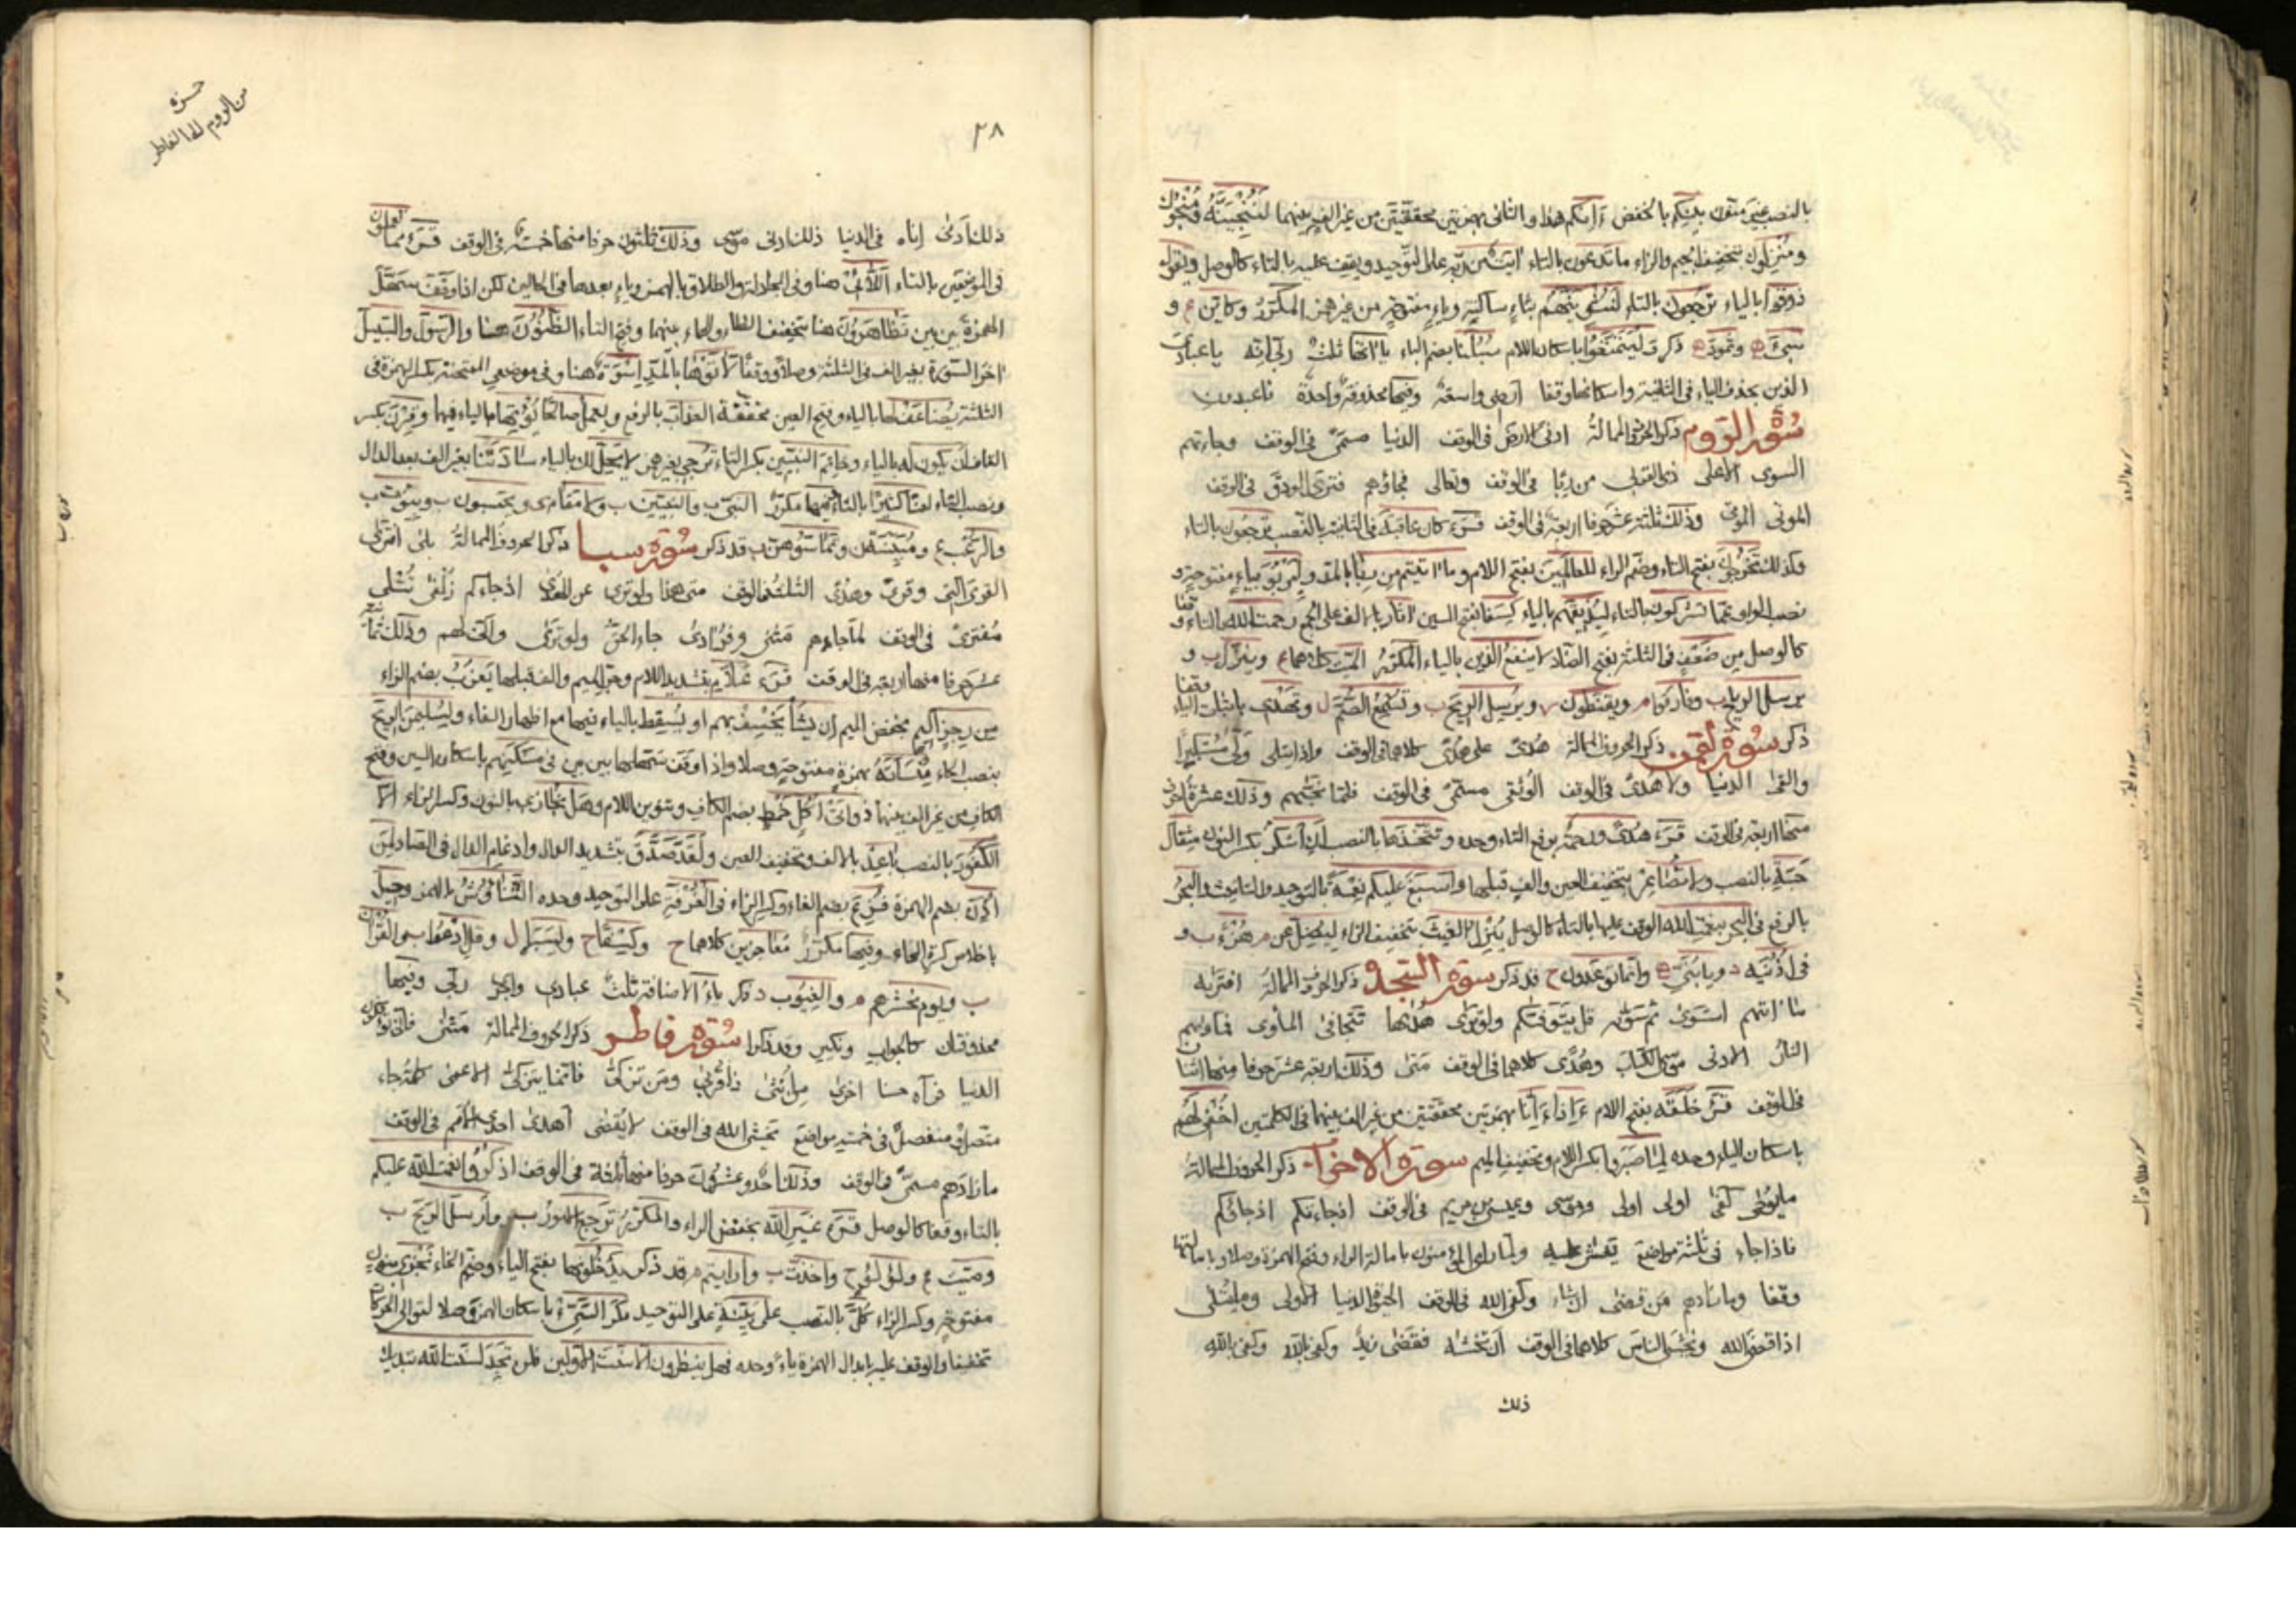 بالنصب عنى منون بينكم بالخفض أءنكم هذا والثانى بهمزتين محققتين من غير الف بينهما لننجينه ومنجوك
ومنزلون بتخفيف الجيم والزاء ما تدعون بالتاء آيت من ربه على التوحيد ويقف عليه بالتاء كالوصل ويقول
ذوقوا بالياء ترجعون بالتاء لنثوينهم بثاء ساكنة وياء مفتوحة من غير همز المكرر وكاين و
سىء وثمود ذكر وليتمتعوا باسكان اللام سبلنا بضم الباء ياآتها ثلث ربى انه يا عبادى
الذين بحذف الياء فى الثانية واسكانها وقفا ارضى واسعة وفيها محذوفة واحدة فاعبدون
سورة الروم ذكر الحروف الممالة ادنى الارض فى الوقف الدنيا مسمى فى الوقف وجاءتهم
السوى الاعلى ذى القربى من ربا فى الوقف وتعالى فجاؤهم فترى الودق فى الوقف
الموتى الموتى وذلك ثلثة عشر حرفا اربعة فى الوقف قرء كان عاقبة فى الثانية بالنصب ترجعون بالتاء
وكذلك تخرجون بفتح التاء وضم الراء للعالمين بفتح اللام وما اتيتم من ربا بالمد وليربو بياء مفتوحة و
نصب الواو عما تشركون بالتاء ليذيقهم بالياء كسفا بفتح السين اثار بالف على الجمع رحمت الله بالتاء وقفا
كالوصل من ضعف فى الثلثة بفتح الضاد لا ينفع الذين بالياء المكرر الميت كلاهما وينزل و
يرسل الرياح وفارقوا ويقنطون ويرسل الريح وتسمع الصم وتهدى باثبات الياء وقفا
ذكر سورة لقمن ذكر الحروف الممالة هدى على هدى كلاهما فى الوقف واذا تتلى ولى مستكبرا
والقى الدنيا ولا هدى فى الوقف الوثقى مسمى فى الوقف فلما نجيهم وذلك عشرة احرف
منها اربعة فى الوقف قرء هدى ورحمة برفع التاء وحده ويتخذها بالنصب ان اشكر بكسر النون مثقال
حبة بالنصب ولا تصاعر بتخفيف العين والف قبلها واسبغ عليكم نعمة بالتوحيد والتانيث والبحر
بالرفع فى البحر بنعمت الله الوقف عليها بالتاء كالوصل ينزل الغيث بتخفيف الزاء ليضل عن هزؤا و
فى اذنيه ويابنى وانما يدعون قد ذكر سورة السجدة ذكر الحروف الممالة افتريه
ما اتيهم استوى ثم سويه قل يتوفيكم ولو ترى هديها تتجافى الماوى فماويهم
النار الادنى موسى الكتاب وهدى كلاهما فى الوقف متى وذلك اربعة عشر حرفا منها اثنان
فى الوقف قرء خلقه بفتح اللام ءاذا ءانا بهمزتين محققتين من غير الف بينهما فى الكلمتين اخفى لهم
باسكان الياء وحده لما صبروا بكسر اللام وتخفيف الميم سورة الاحزاب ذكر الحروف الممالة
ما يوحى كفى اولى اولى وموسى وعيسى بن مريم فى الوقف اذ جاءتكم اذ جاؤكم
فاذا جاء فى ثلثة مواضع يغشى عليه ولما راى المؤمنون بامالة الراء وفتح الهمزة وصلا وبامالتهما
وقفا وما زادهم من قضى ان شاء وكفى الله فى الوقف الحيوة الدنيا الاولى وما يتلى
اذا قضى الله وتخشى الناس كلاهما فى الوقف ان تخشيه فقضى زيد وكفى بالله وكفى بالله
ذلك
حمزه
من الروم الى الفاطر
٢٨
ذلك ادنى اناه فى الدنيا ذلك ادنى موسى وذلك ثلثون حرفا منها خمسة فى الوقف قرء مما تعملون
فى الموضعين بالتاء اللائى هنا وفى المجادلة والطلاق بالهمز وياء بعدها فى الحالين لكن اذا وقف سهل
الهمزة بين بين تظاهرون هنا بتخفيف الظاء والهاء بينهما وفتح التاء الظنون هنا والرسول والسبيل
اخر السورة بغير الف فى الثلثة وصلا ووقفا لاتوها بالمد اسوة هنا وفى موضعى الممتحنة بكسر الهمزة فى
الثلثة يضاعف لها بالياء وفتح العين مخففة العذاب بالرفع ويعمل صالحا يؤتها بالياء فيهما وقرن بكسر
القاف ان يكون له بالياء وخاتم النبيين بكسر التاء ترجى بغير همز لا يحل لك بالياء سادتنا بغير الف بعد الدال
ونصب التاء لعنا كثيرا بالثاء فيها مكرر النبى والنبيين ولا مقام ويحسبون وبيوت
والرعب ومبينة وتماسوهن قد ذكر سورة سبا ذكر الحروف الممالة بلى افترى
القرى التى وقرى وهدى الثلثة فى الوقف متى هذا ولو ترى عن الهدى اذ جاءكم زلفى تتلى
مفترى فى الوقف لما جاءهم مثنى وفرادى جاء الحق ولو ترى وانى لهم وذلك ثمانية
عشر حرفا منها اربعة فى الوقف قرء علام بتشديد اللام وخفض الميم والف قبلها يعزب بضم الزاء
من رجز اليم بخفض الميم ان يشا يخسف بهم او يسقط بالياء فيها مع اظهار الفاء ولسليمن الريح
بنصب الحاء منسأته بهمزة مفتوحة وصلا واذا وقف سهلها بين بين فى مسكنهم باسكان السين وفتح
الكاف من غير الف بينهما ذواتى اكل خمط بضم الكاف وتنوين اللام وهل نجازى بالنون وكسر الزاء الا
الكفور بالنصب باعد بالالف وتخفيف العين ولقد صدق بتشديد الدال وادغام الدال فى الصاد لمن
اذن بضم الهمزة فزع بضم الفاء وكسر الزاء فى الغرفة على التوحيد وحده التناوش بالهمز وحيل
باخلاص كسرة الحاء وفيها مكرر معاجزين كلاهما وكسفا وليسيرا وقل ادعوا والقران
ويوم نحشرهم والغيوب ذكر ياء الاضافة ثلث عبادى واجرى ربى وفيها
محذوفتان كالجواب ونكير وقد ذكرا سورة فاطر ذكر الحروف الممالة مثنى فانى تؤفكون
الدنيا فرآه حسنا اخرى من انثى ذا قربى ومن تزكى فانما يتزكى الاعمى كله جاء
متصل او منفصل فى خمسة مواضع يخشى الله فى الوقف لا يقضى اهدى احدى الامم فى الوقف
ما زادهم مسمى فى الوقف وذلك احد وعشرون حرفا منها ثلثة فى الوقف اذكروا نعمت الله عليكم
بالتاء وقفا كالوصل قرء غير الله بخفض الراء والمكرر ترجع الامور وارسل الريح
وميت ولؤلؤ واخذت وارايتم قد ذكر يدخلونها بفتح الياء وضم الخاء نجزى بنون
مفتوحة وكسر الزاء كل بالنصب على بينة على التوحيد مكر السيئ باسكان الهمزة وصلا لتوالى الحركات
تخفيفا والوقف عليه بابدال الهمزة ياء وحده فهل ينظرون الا سنت الاولين فلن تجد لسنت الله تبديلا